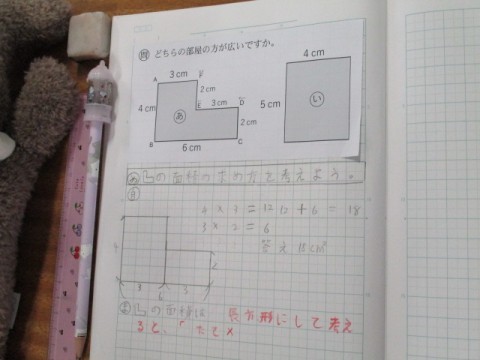 問 どちらの部屋の方が広いですか。
3 cm
4 cm
A
F
2 cm
4 cm
E
3 cm
D
あ
5 cm
い
2 cm
B
6 cm
C
の面積の求め方を考えよう。
4 × 3 = 12 12 + 6 = 18
3 × 2 = 6
答え 18 cm²
4
2
3
3
6
の面積は、長方形にして考え
ると、「たて×